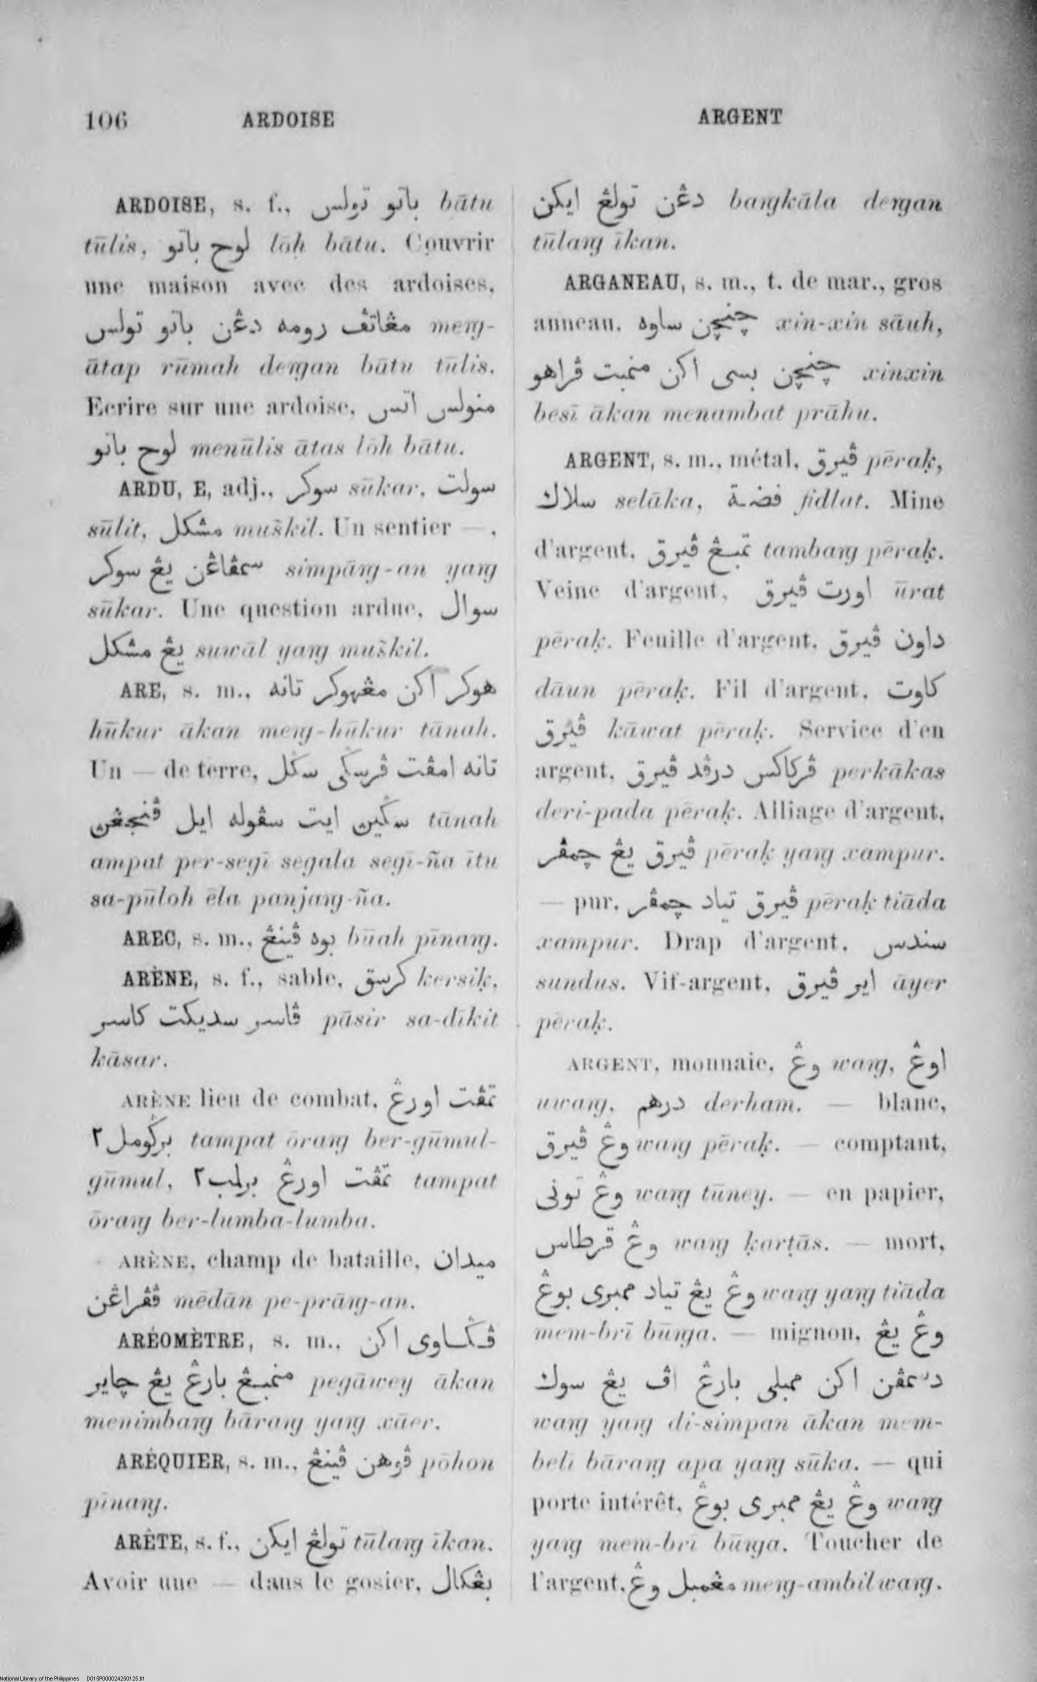 106 ARDOISE ARGENT
ARDOISE, s. f., باتو تولس bātu
tūlis, لوح باتو lōḥ bātu. Couvrir
une maison avec des ardoises,
مڠاتڤ رومه دڠن باتو تولس meng-
ātap rūmah dengan bātu tūlis.
Ecrire sur une ardoise, منولس اتس
لوح باتو menūlis ātas lōh bātu.
ARDU, E, adj., سوكر sūkar, سولت
sūlit, مشكل muškil. Un sentier — ,
سمڤاڠن يڠ سوكر simpāng-an yang
sūkar. Une question ardue, سوال
يڠ مشكل suwāl yang muškil.
ARE, s. m., هوكر اكن مڠهوكر تانه
hūkur ākan meng-hūkur tānah.
Un — de terre, تانه امڤت ڤرسڬي سڬل
سڬين ايت سڤوله ايل ڤنجڠن tānah
ampat per-segī segala segī-ña ītu
sa-pūloh ēla panjang-ña.
AREC, s. m., بوه ڤينڠ būah pīnang.
ARÈNE, s. f., sable, كرسق kersiḳ,
ڤاسر سديكت كاسر pāsir sa-dīkit
kāsar.
ARÈNE lieu de combat, تمڤت اورڠ
برڬومل٢ tampat ōrang ber-gūmul-
gūmul, تمڤت اورڠ برلمب٢ tampat
ōrang ber-lumba-lumba.
ARÈNE, champ de bataille, ميدان
ڤڤراڠن mēdān pe-prāng-an.
ARÉOMÈTRE, s. m., ڤڬاوي اكن
منمبڠ بارڠ يڠ چاير pegāwey ākan
menimbang bārang yang xāer.
ARÉQUIER, s. m., ڤوهن ڤينڠ pōhon
pīnang.
ARÊTE, s. f., تولڠ ايكن tūlang īkan.
Avoir une — dans le gosier, بڠكال
دڠن تولڠ ايكن bangkāla dengan
tūlang īkan.
ARGANEAU, s. m., t. de mar., gros
anneau, چنچن ساوه xin-xin sāuh,
چنچن بسي اكن منمبت ڤراهو xinxin
besī ākan menambat prāhu.
ARGENT, s. m., métal, ڤيرق pēraḳ,
سلاك selāka, فضة fidlat. Mine
d'argent, تمبڠ ڤيرق tambang pēraḳ.
Veine d'argent, اورت ڤيرق ūrat
pēraḳ. Feuille d'argent, داون ڤيرق
dāun pēraḳ. Fil d'argent, كاوت
ڤيرق kāwat pēraḳ. Service d'en
argent, ڤركاكس درڤد ڤيرق perkākas
deri-pada pēraḳ. Alliage d'argent,
ڤيرق يڠ چمڤر pēraḳ yang xampur.
— pur, ڤيرق تياد چمڤر pēraḳ tiāda
xampur. Drap d'argent, سندس
sundus. Vif-argent, اير ڤيرق āyer
pēraḳ.
ARGENT, monnaie, وڠ wang, اوڠ
uwang, درهم derham. — blanc,
وڠ ڤيرق wang pēraḳ. — comptant,
وڠ توني wang tūney. — en papier,
وڠ قرطاس wang ḳarṭās. — mort,
وڠ يڠ تياد ممبري بوڠ wang yang tiāda
mem-brī būnga. — mignon, وڠ يڠ
دسمڤن اكن ممبلي بارڠ اڤ يڠ سوك
wang yang di-simpan ākan mem-
beli bārang apa yang sūka. — qui
porte intérêt, وڠ يڠ ممبري بوڠ wang
yang mem-brī būnga. Toucher de
l'argent, مڠمبل وڠ meng-ambil wang.
National Library of the Philippines